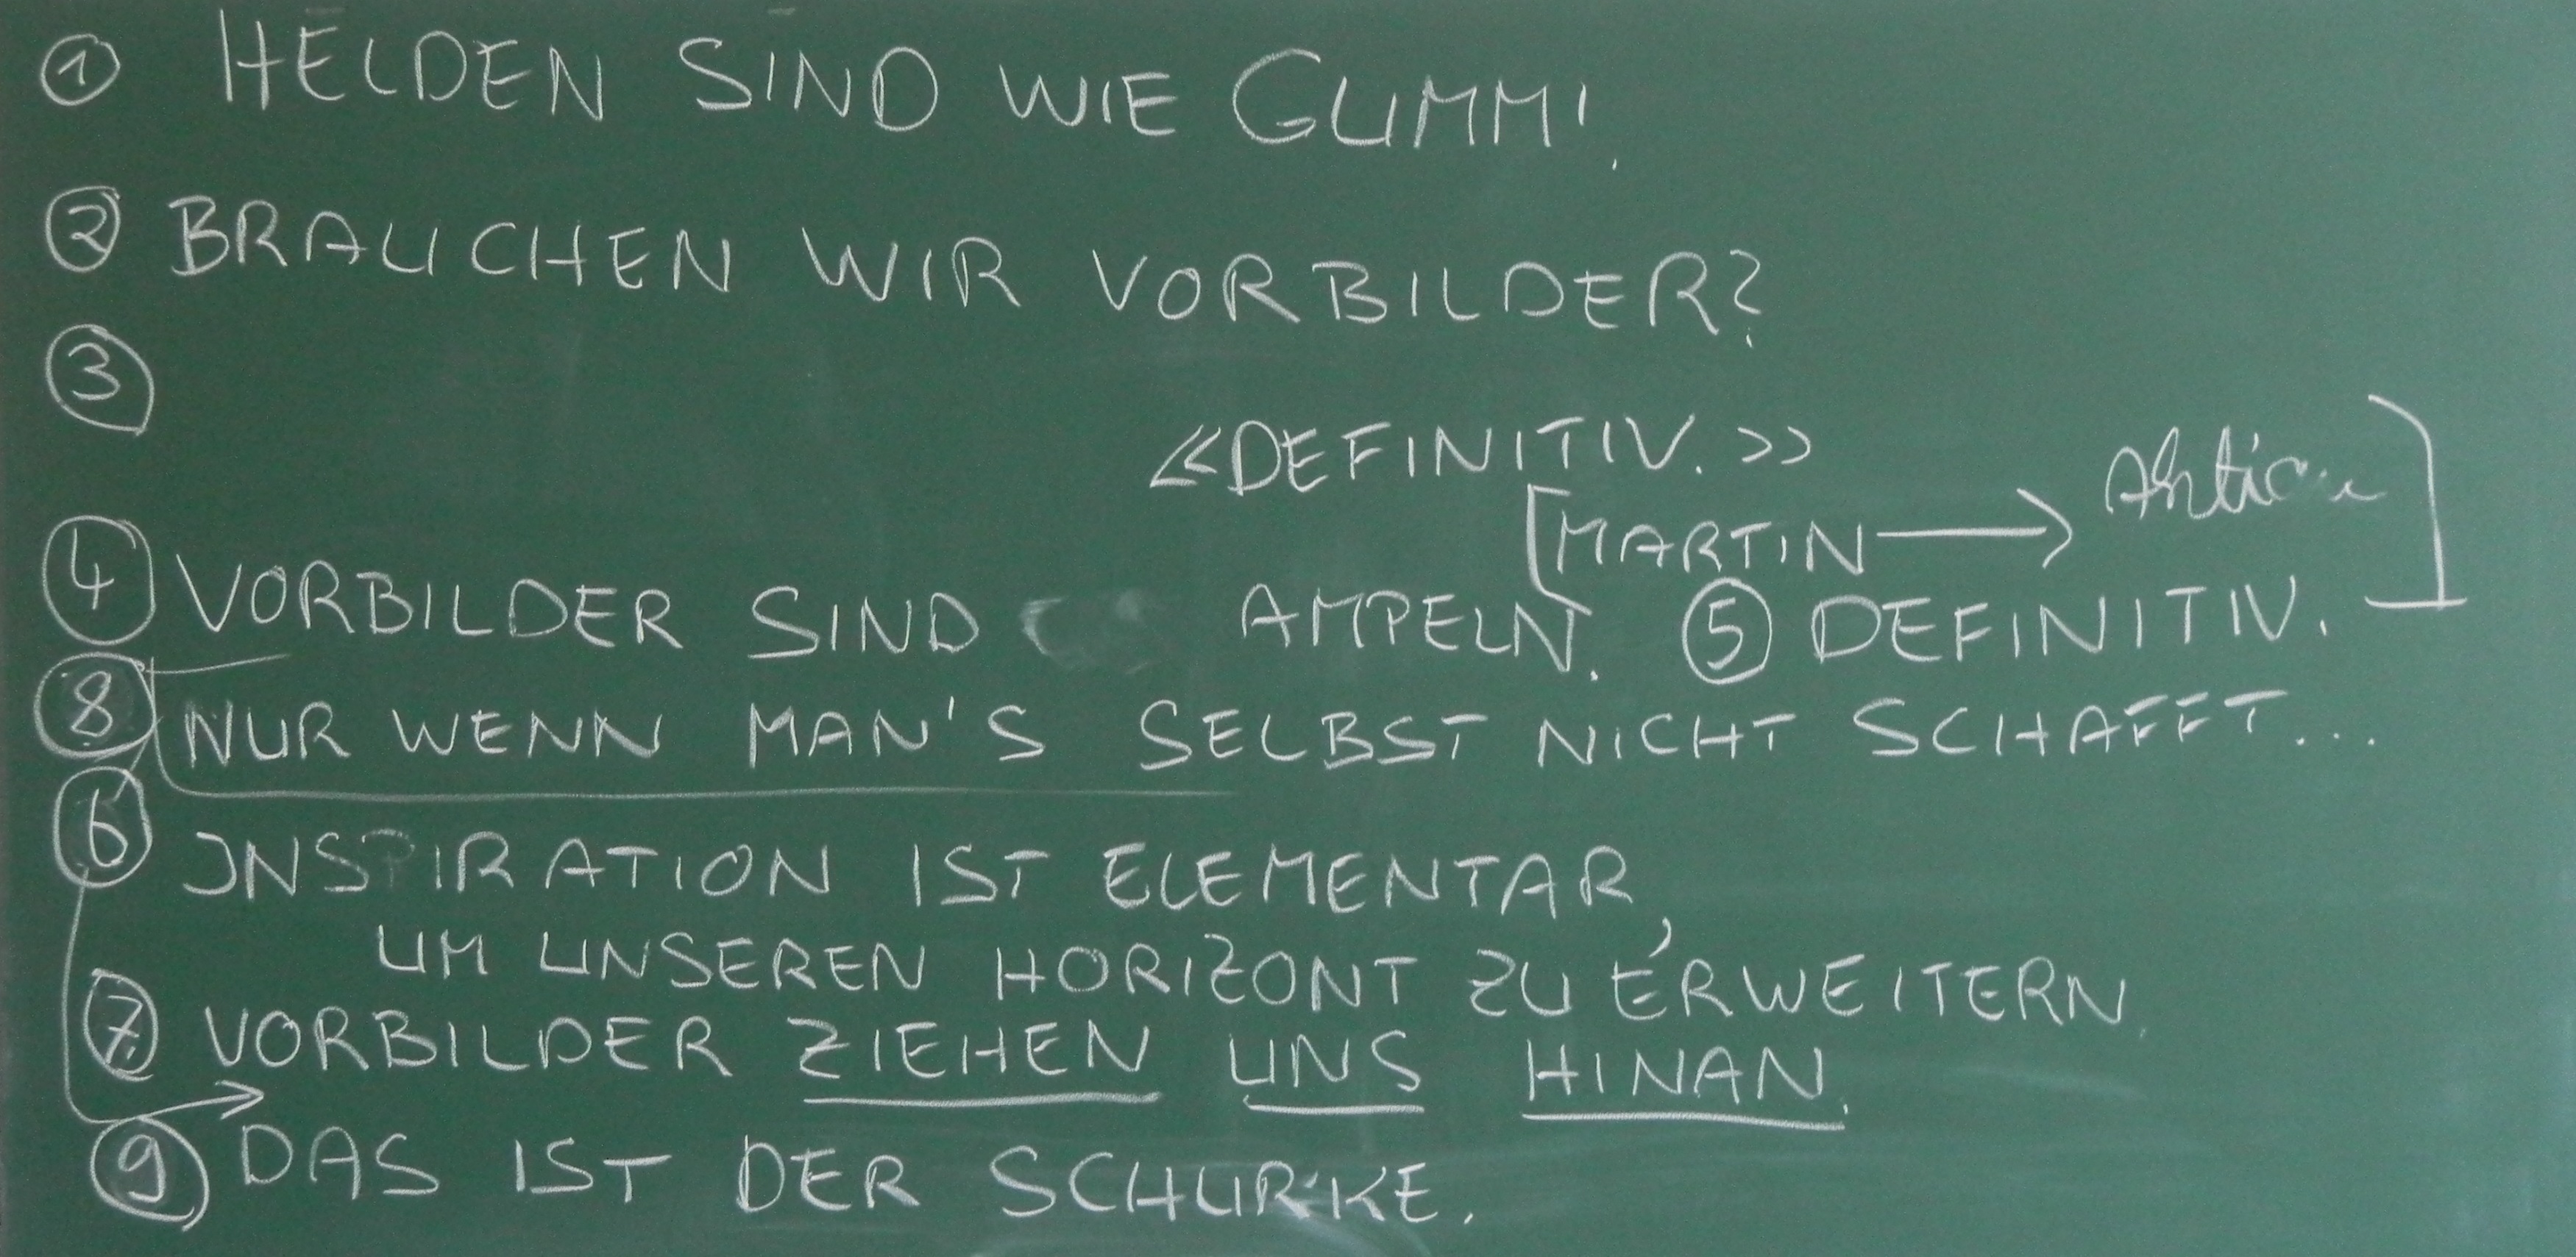 ① HELDEN SIND WIE GUMMI.
② BRAUCHEN WIR VORBILDER?
③
«DEFINITIV.»
[MARTIN → ]
④ VORBILDER SIND AMPELN. ⑤ DEFINITIV.
⑧ NUR WENN MAN'S SELBST NICHT SCHAFFT...
⑥ INSPIRATION IST ELEMENTAR,
UM UNSEREN HORIZONT ZU ERWEITERN.
⑦ VORBILDER ZIEHEN UNS HINAN.
⑨ DAS IST DER SCHURKE.